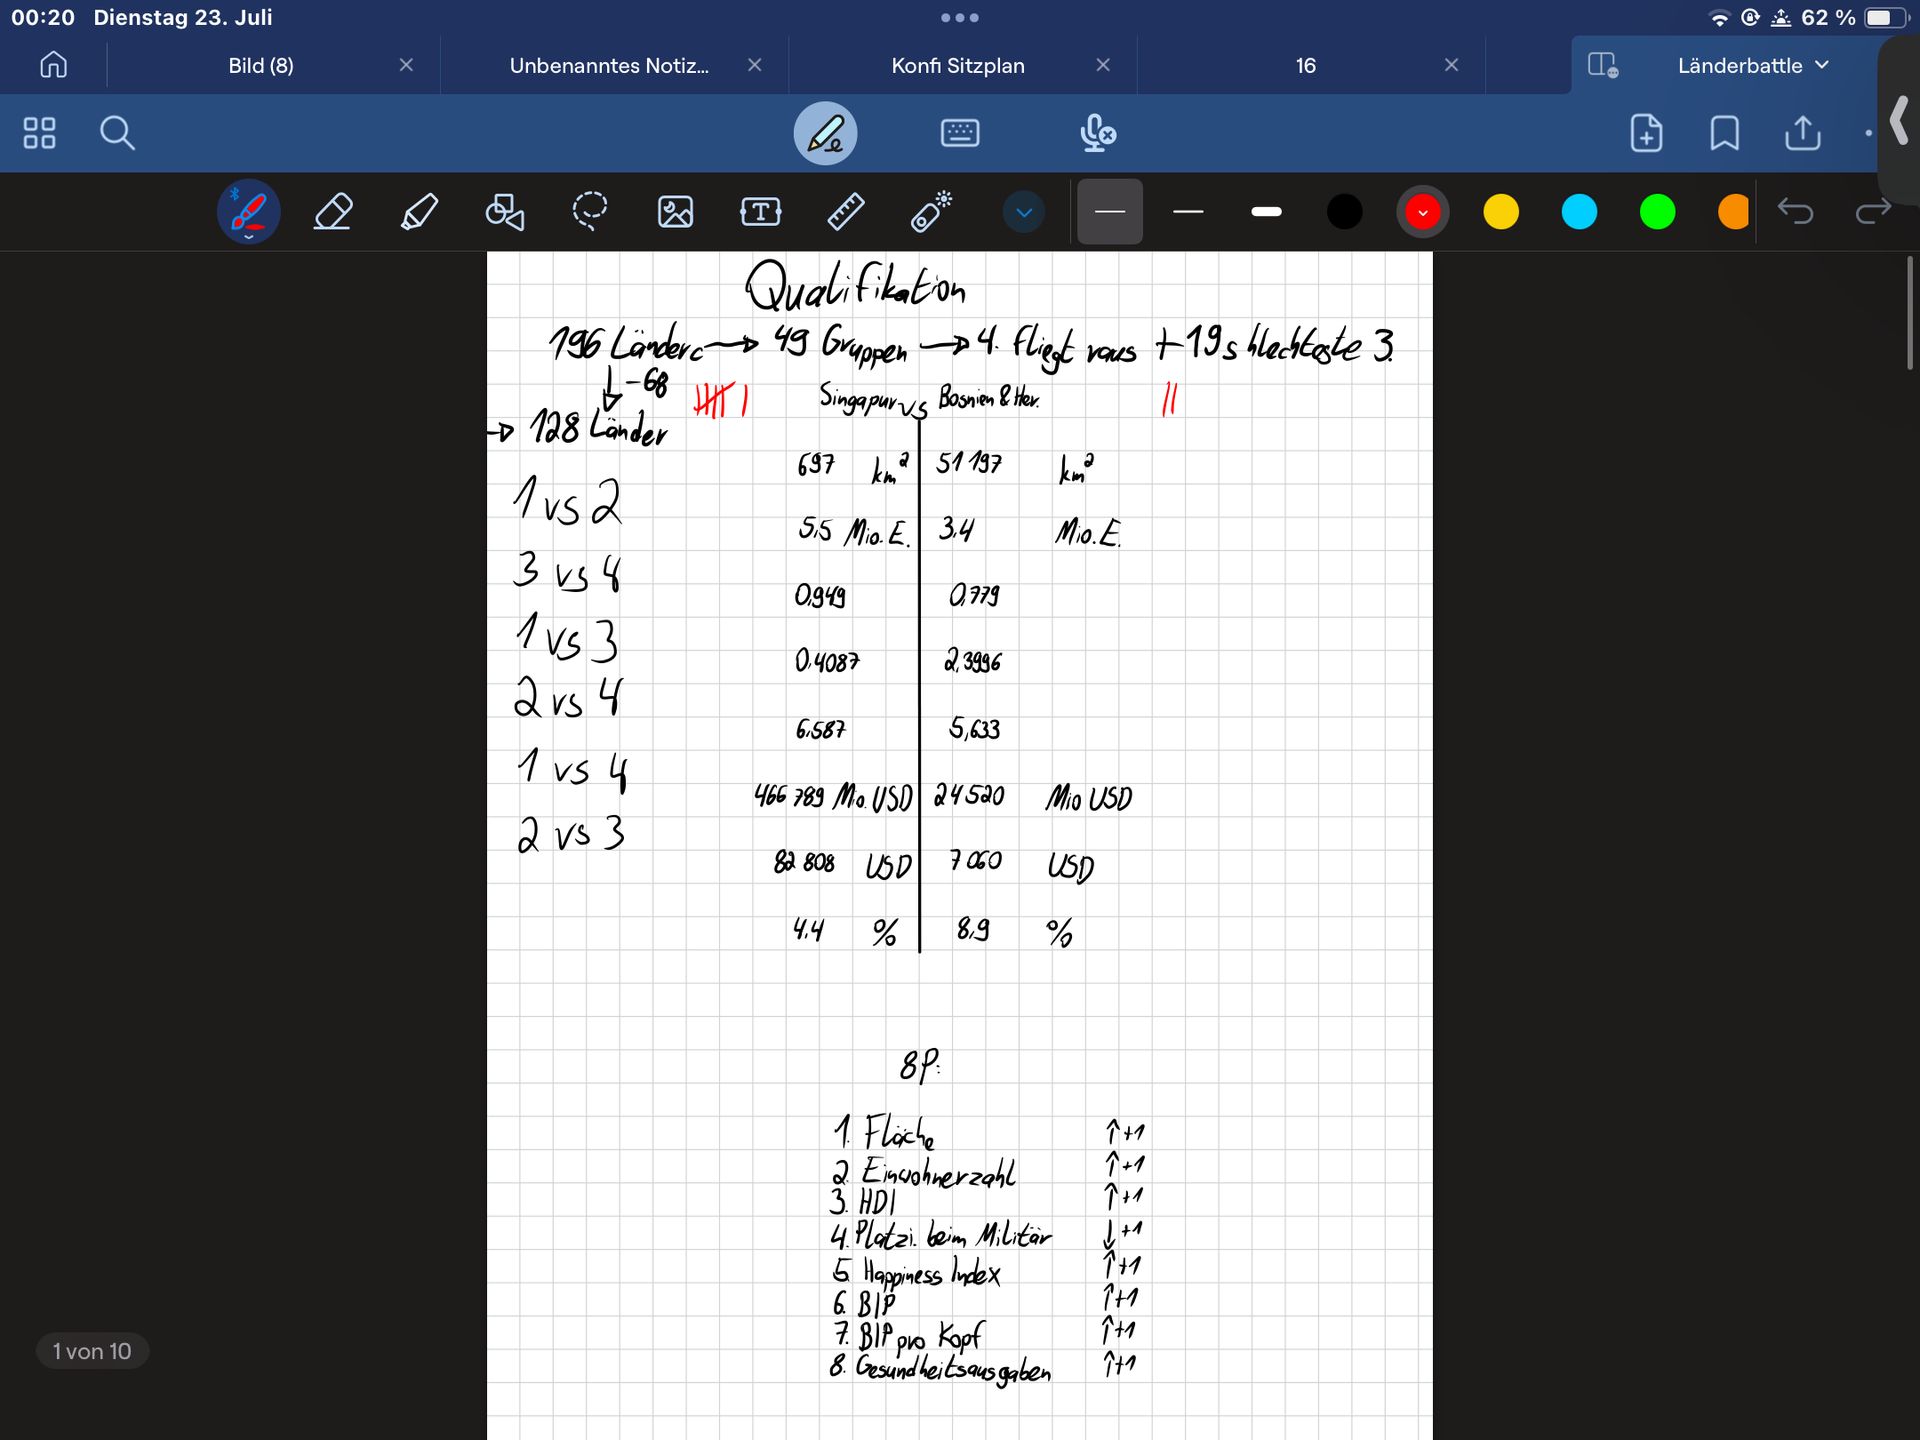 00:20 Dienstag 23. Juli
62 %
Bild (8)
Unbenanntes Notiz...
Konfi Sitzplan
16
Länderbattle
Qualifikation
196 Länder → 49 Gruppen → 4. fliegt raus + 19 schlechteste 3.
↓ -68
→ 128 Länder
Singapur vs Bosnien & Her.
697 km² 51 197 km²
1 vs 2
5,5 Mio. E. 3,4 Mio. E.
3 vs 4
0,949 0,779
1 vs 3
0,4087 2,3996
2 vs 4
6,587 5,633
1 vs 4
466 789 Mio. USD 24 520 Mio USD
2 vs 3
82 808 USD 7 060 USD
4,4 % 8,9 %
8P:
1. Fläche ↑+1
2. Einwohnerzahl ↑+1
3. HDI ↑+1
4. Platzi. beim Militär ↓+1
5. Happiness Index ↑+1
6. BIP ↑+1
7. BIP pro Kopf ↑+1
8. Gesundheitsausgaben ↑+1
1 von 10